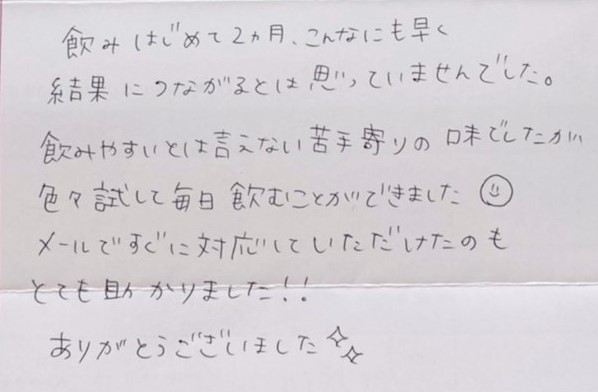 飲みはじめて2ヵ月、こんなにも早く
結果につながるとは思っていませんでした。
飲みやすいとは言えない苦手寄りの味でしたが
色々試して毎日飲むことができました☺
メールですぐに対応していただけたのも
とても助かりました!!
ありがとうございました✨